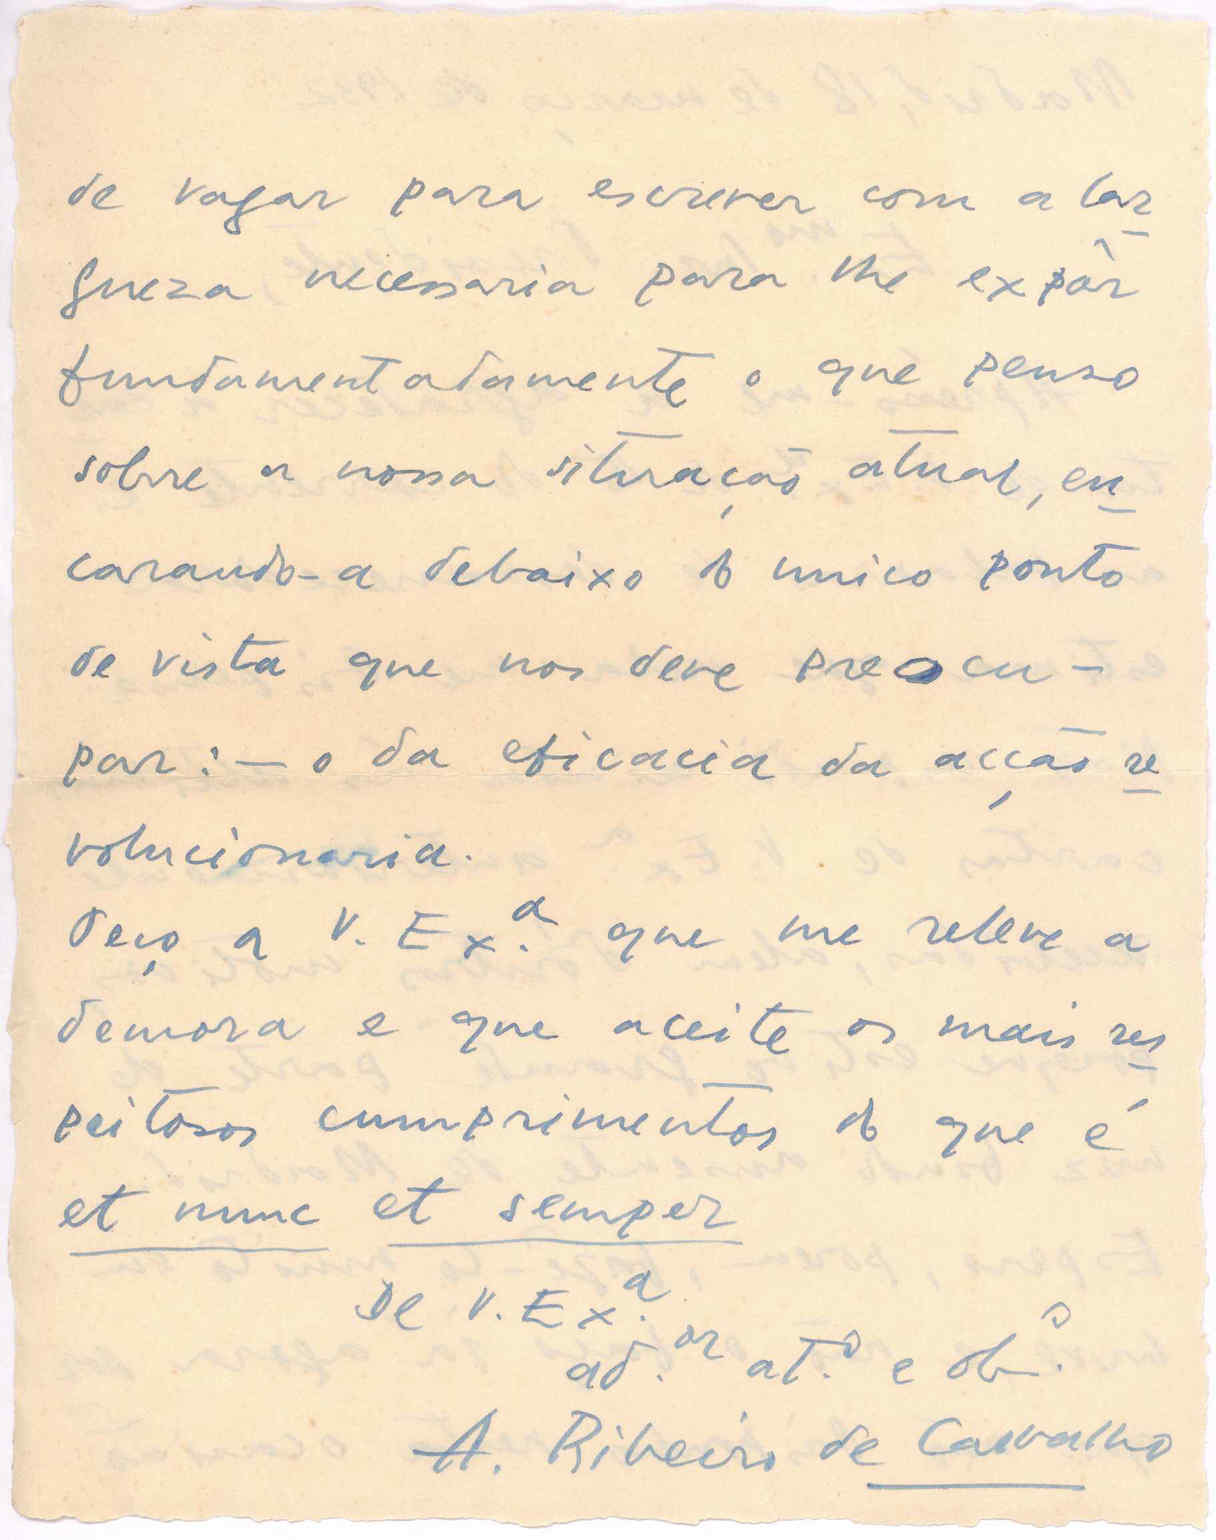 de vagar para escrever com a lar
gueza necessaria para lhe expôr
fundamentadamente o que penso
sobre a nossa situação atual, en
carando-a debaixo do unico ponto
de vista que nos deve preocu-
par: — o da eficacia da acção re
volucionaria.
Peço a V. Ex.ª que me releve a
demora e que aceite os mais res
peitosos cumprimentos do que é
et nunc et semper
De V. Ex.ª
ad.or at.º e ob.º
A. Ribeiro de Carvalho